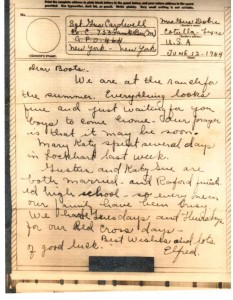 Sgt Gus Cardwell
New York - New York
Mrs Gus Dobie
Cotulla - Texas
U.S.A
June 12 - 1944
Dear Boots:
We are at the ranch for
the summer. Everything looks
fine and just waiting for you
boys to come home. Our prayer
is that it may be soon.
Mary Katy spent several days
in Lockhart last week.
Gustie and Katy Sue are
both married - and Raford finish
ed high school - so every one in
our family have been busy
We have Tuesdays and Thursdays
for our Red Cross days -
Best Wishes and lots
of good luck.
Elfred.